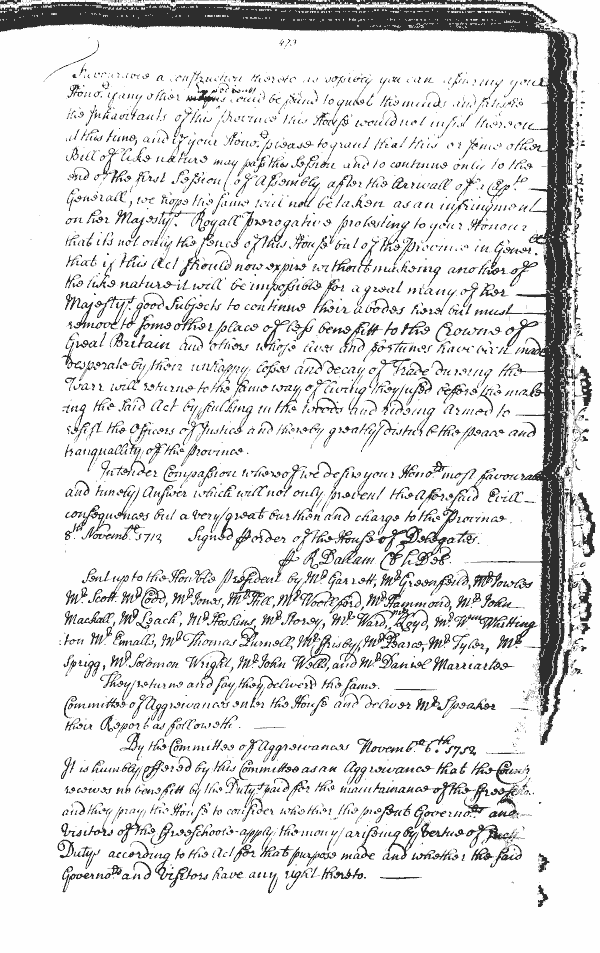 423
Favourable a construction thereto as possibly you can assuring your
Hono.r if any other could be found to quiet the minds and satisfie
the Inhabitants of this province this House would not insist thereon
at this time, and if your Hono.r please to grant that this or some other
Bill of like nature may pass this Session and to continue only to the
end of the first Session of Assembly after the Arrivall of a Capt
Generall, we hope the same will not be taken as an infringment
on her Majestys Royall prerogative protesting to your Honour
that its not only the sence of this House but of the Province in Gener.ll
that if this Act should now expire without makeing another of
the like nature it will be impossible for a great many of her
Majestys good Subjects to continue their abodes here but must
remove to some other place of less benefitt to the Crowne of
Great Britain and others whose lives and fortunes have been made
desperate by their unhappy losses and decay of Trade dureing the
Warr will returne to the same way of living they used before the make
ing the said Act by sculking in the woods and rideing Armed to
resist the Officers of Justice and thereby greatly disturb the peace and
tranquallity of the province.
In tender Compassion whereof we desire your Hono.rs most favourable
and timely Answer which will not only prevent the Aforesaid Evill
consequences but a very great burthen and charge to the Province
8.th Novemb.r 1712 Signed p order of the House of Delegates.
p R Dallam Cl h Del
Sent up to the Honble President by Mr Garrett, Mr Greenfeild, Mr Fowles
Mr Scott, Mr Codd, Mr Jones, Mr Hill, Mr Woolford, Mr Hammond, Mr John
Mackall, Mr Leach, Mr Hoskins, Mr Storey, Mr Ward, Lloyd, Mr Wm Whitting
ton Mr Ennalls, Mr Thomas Purnell, Mr Frisby, Mr Pearce, Mr Tyler, Mr
Sprigg, Mr Solomon Wright, Mr John Wells, and Mr Daniel Marriartee
They returne and say they deliverd the same.
Committee of Aggreivances enter the House and deliver Mr Speaker
their Report as followeth
By the Committee of Aggreivances Novemb.r 6.th 1712
It is humbly offered by this Committee as an Aggreivance that the County
receives no benefitt by the Dutys paid for the maintainance of the freeschoo
and they pray the House to consider whether the present Governo.rs and
Visitors of the Freeschoole apply the mony ariseing by vertue of such
Dutys according to the Act for that purpose made and whether the said
Governo.rs and Visitors have any right thereto.